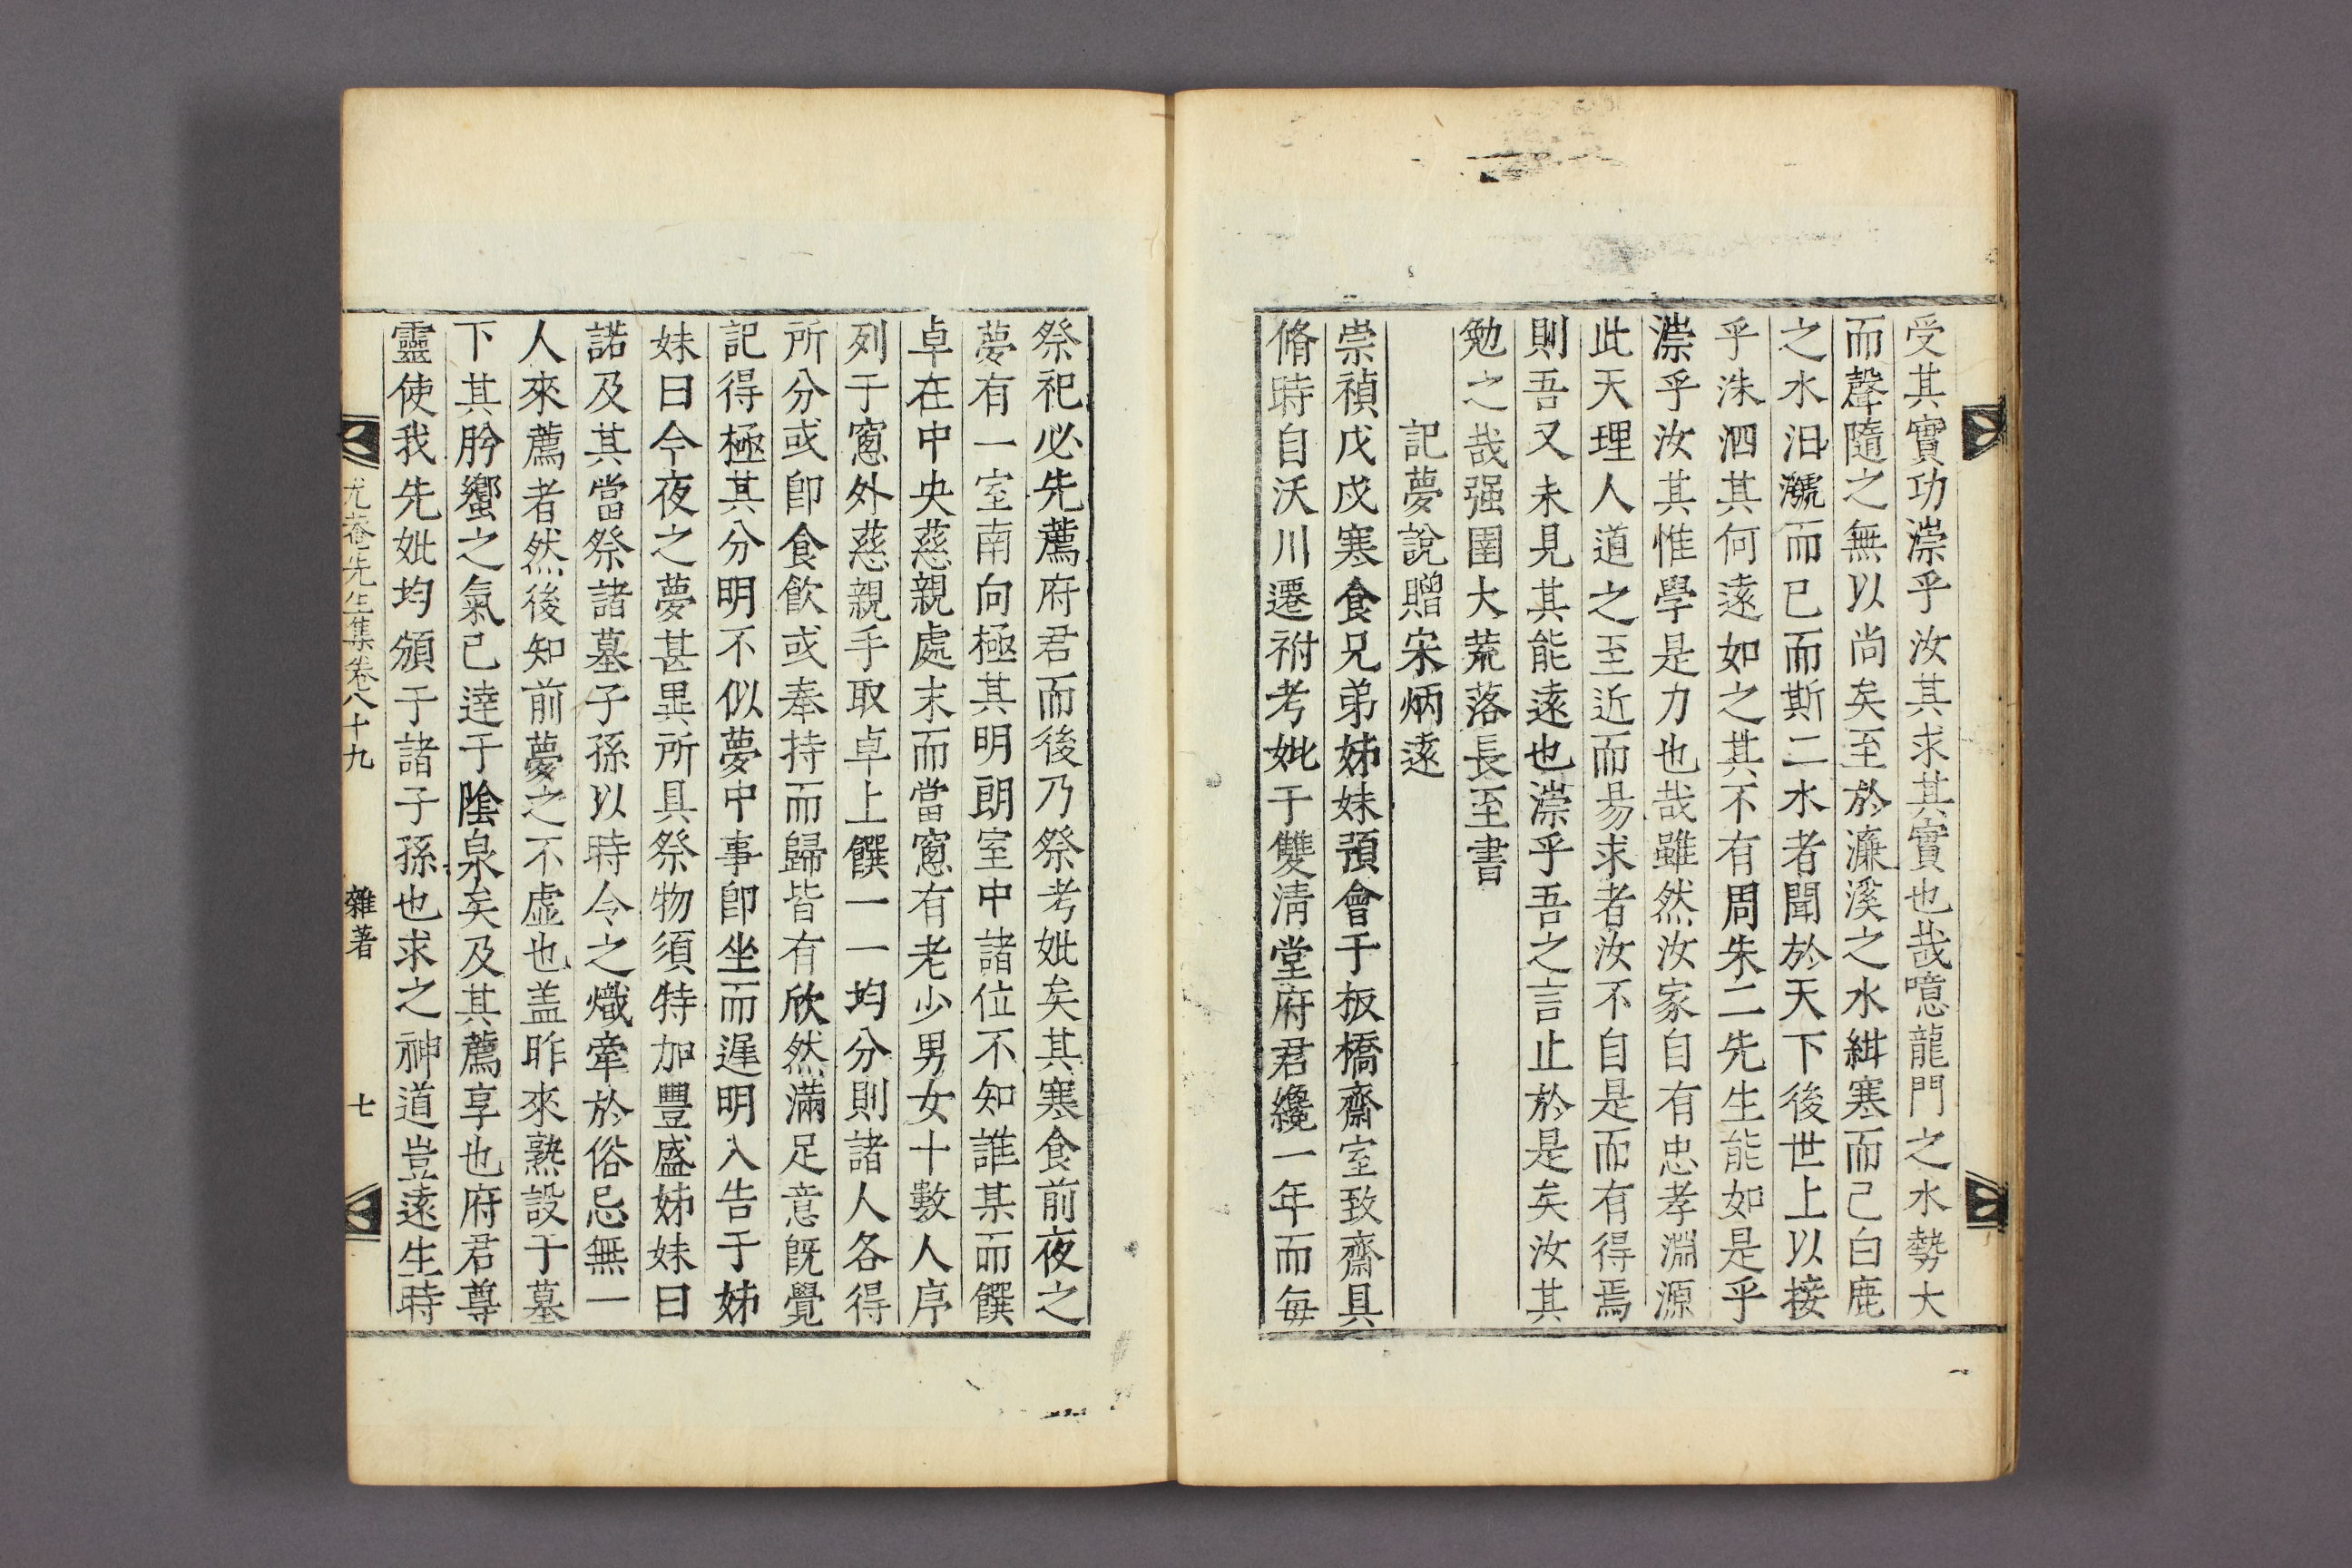 受其實功漴乎汝其求其實也哉噫龍門之水勢大
而聲隨之無以尚矣至於濂溪之水紺寒而已白鹿
之水汩㶁而已而斯二水者聞於天下後世上以接
乎洙泗其何遠如之其不有周朱二先生能如是乎
漴乎汝其惟學是力也哉雖然汝家自有忠孝淵源
此天理人道之至近而昜求者汝不自是而有得焉
則吾又未見其能遠也漴乎吾之言止於是矣汝其
勉之哉强圉大荒落長至書
記夢說贈宋炳遠
崇禎戊戌寒食兄弟姊妹預會于板橋齋室致齋具
脩時自沃川遷祔考妣于雙淸堂府君纔一年而每
祭祀必先薦府君而後乃祭考妣矣其寒食前夜之
夢有一室南向極其明朗室中諸位不知誰某而饌
卓在中央慈親處末而當窓有老少男女十數人序
列于窓外慈親手取卓上饌一一均分則諸人各得
所分或卽食飮或奉持而歸皆有欣然滿足意旣覺
記得極其分明不似夢中事卽坐而遲明入告于姊
妹曰今夜之夢甚異所具祭物須特加豐盛姊妹曰
諾及其當祭諸墓子孫以時令之熾牽於俗忌無一
人來薦者然後知前夢之不虛也盖昨來熟設于墓
下其肹蠁之氣已達于陰泉矣及其薦享也府君尊
靈使我先妣均頒于諸子孫也求之神道豈遠生時
尤菴先生集卷八十九 雜著 七